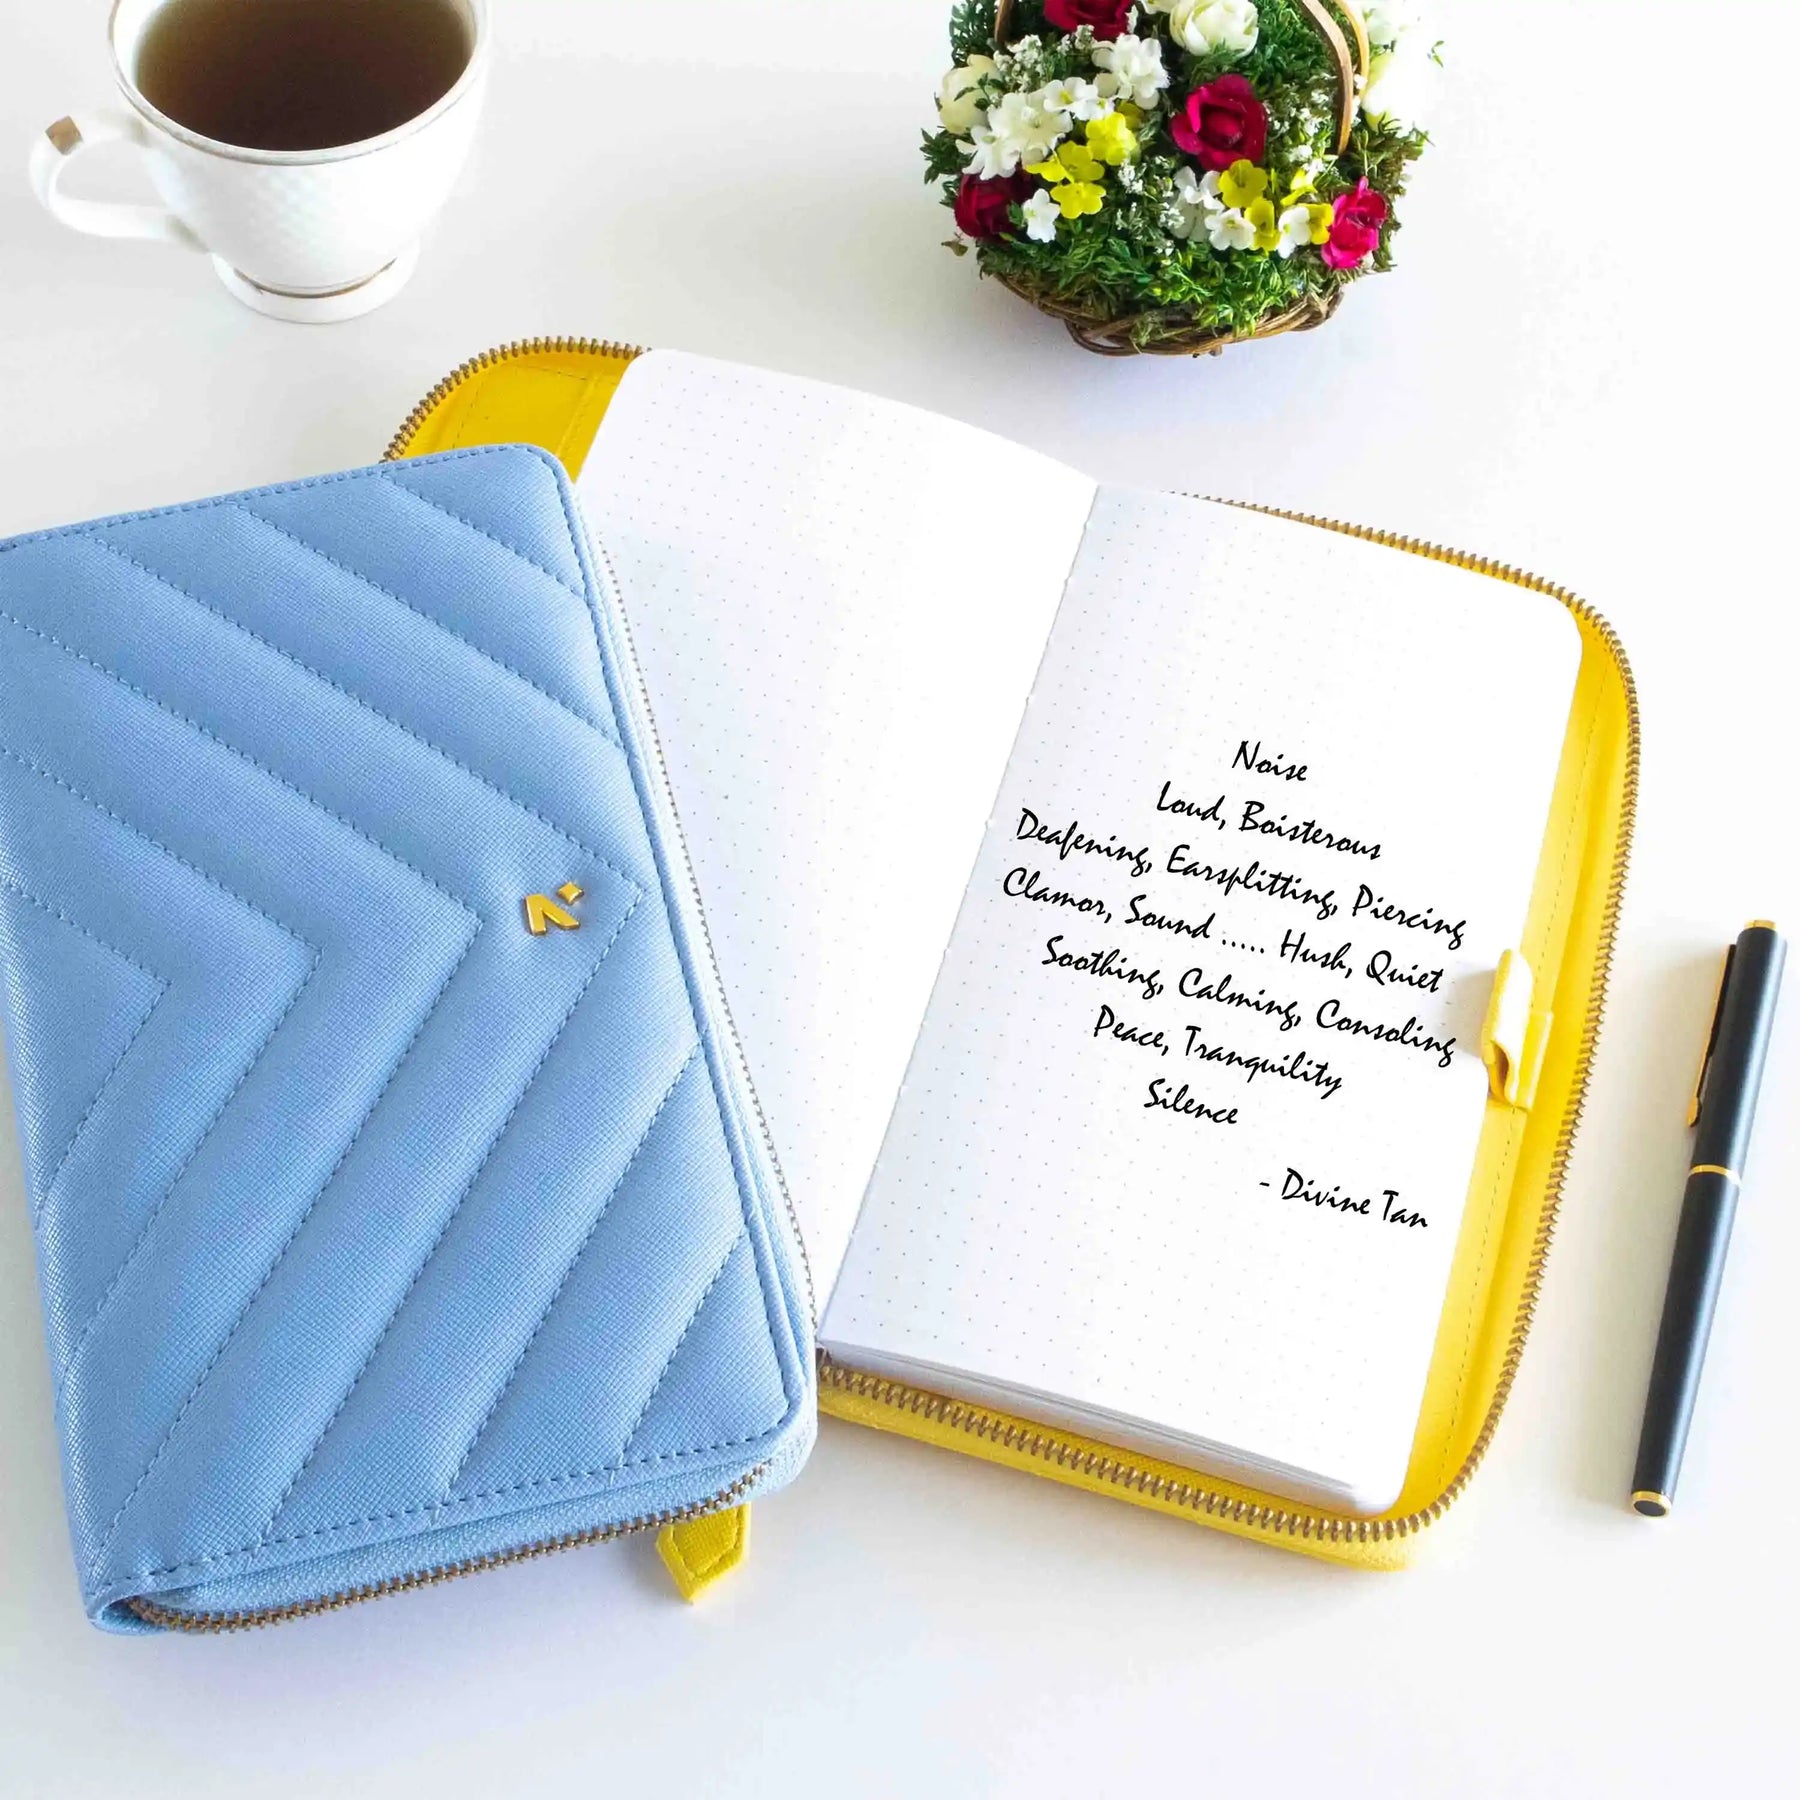 Noise
Loud, Boisterous
Deafening, Earsplitting, Piercing
Clamor, Sound ..... Hush, Quiet
Soothing, Calming, Consoling
Peace, Tranquility
Silence
- Divine Tan